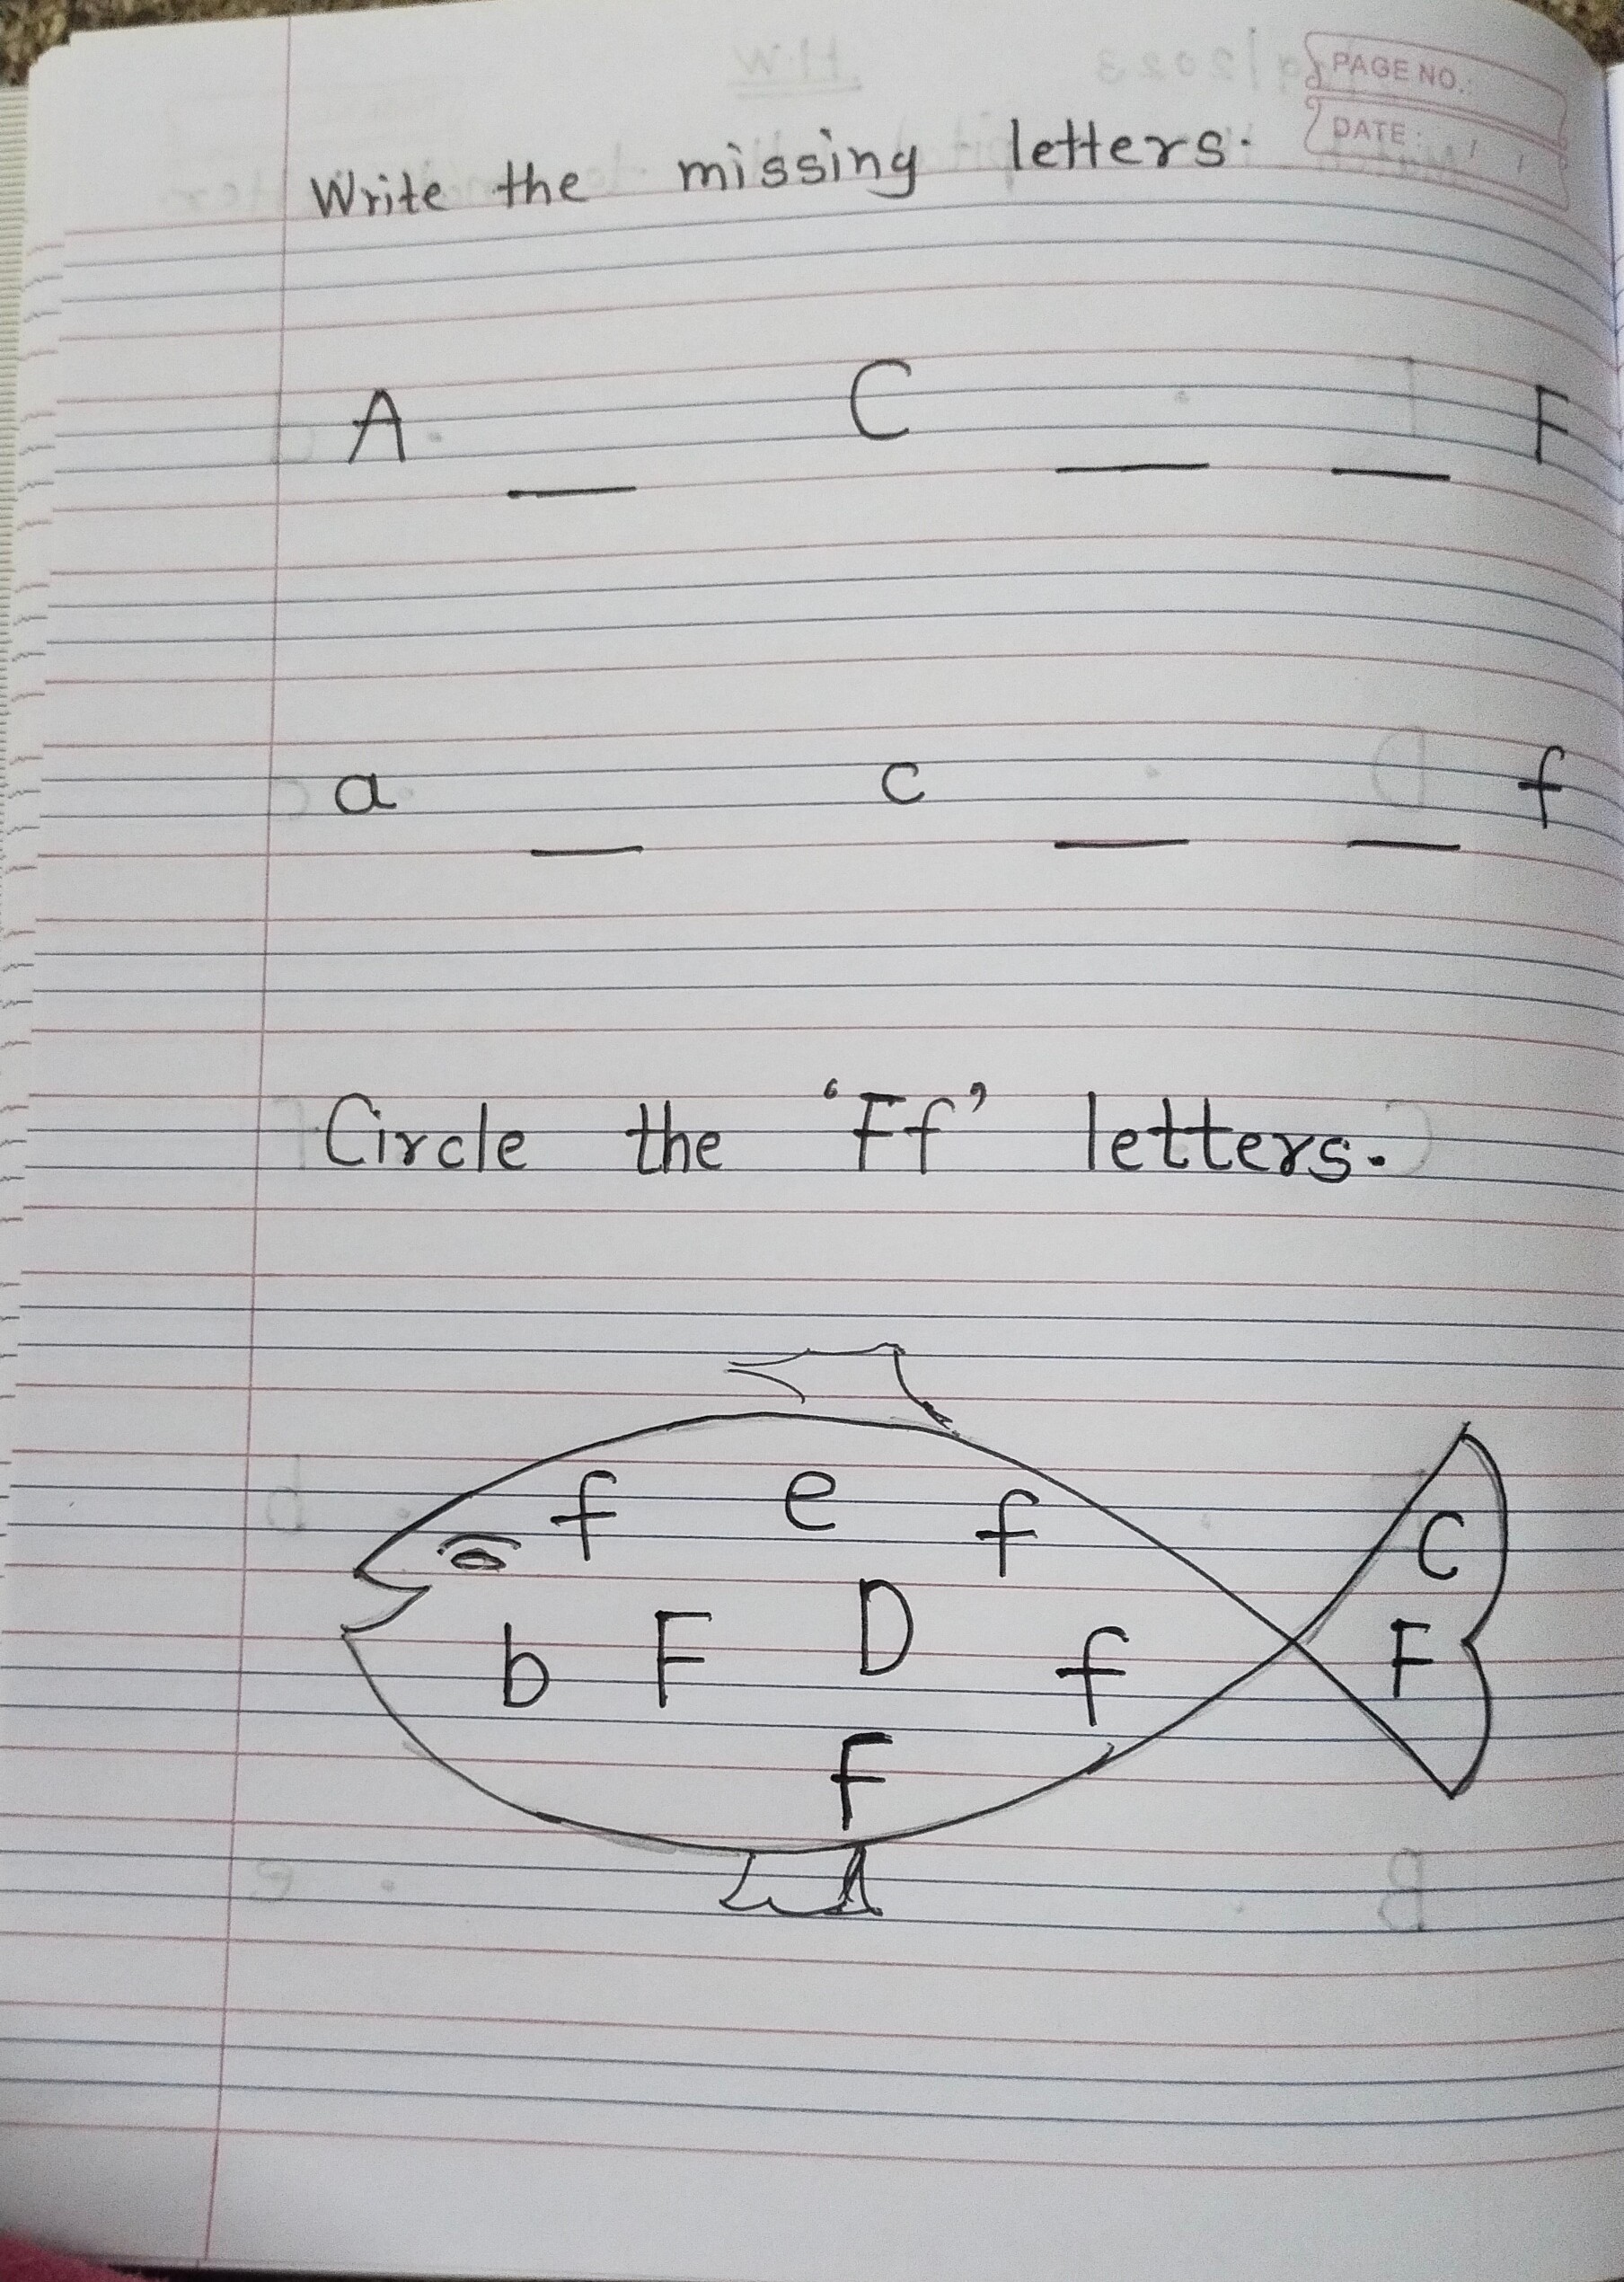 PAGE NO.:
DATE: / /
Write the missing letters.
A __ C __ __ F
a __ c __ __ f
Circle the 'Ff' letters.
f e f
C
b F D f F
F